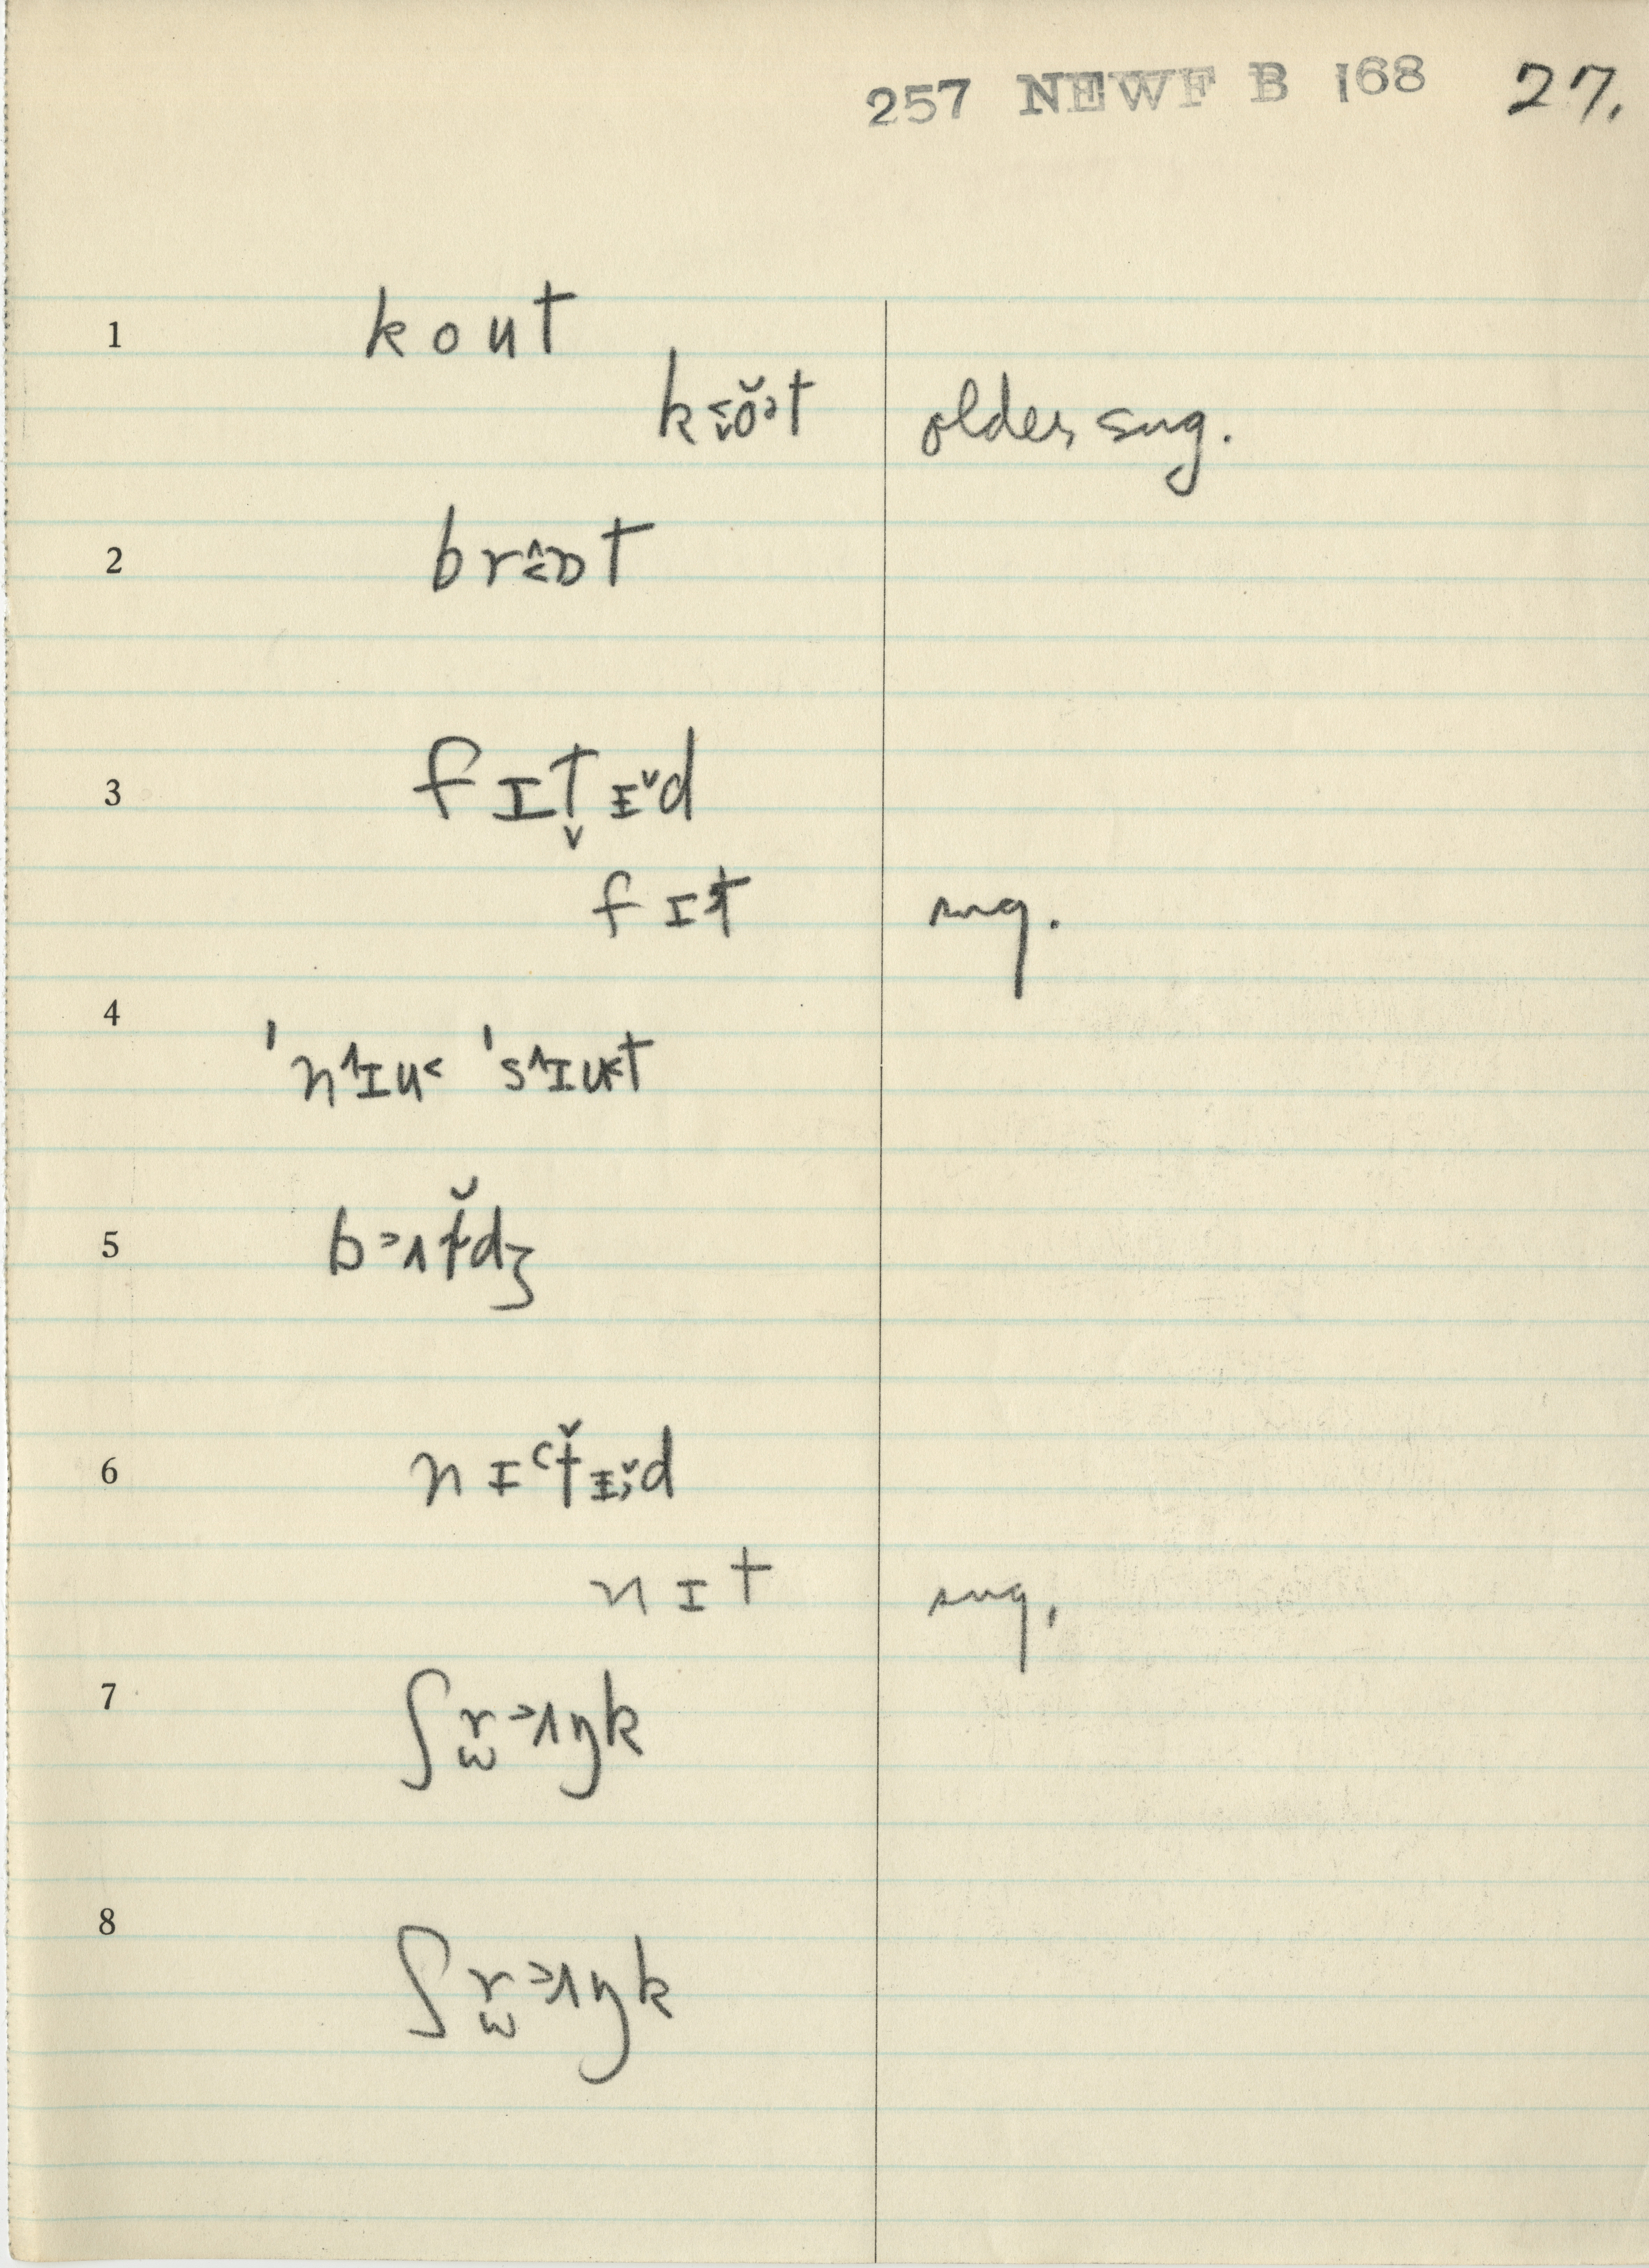 257 NEWF B 168 27.
1 k o u t
k˂˯ŏ˃t older sug.
2 br˄˂ɒt
3 f ɪ t̬ ɪ˅d
f ɪ t sug.
4 'n˄ɪu˂ 's˄ɪu˂t
5 b˃ʌt̆dʒ
6 n ɪ t̬ ɪ˅d
n ɪ t sug.
7 ʃr̫˃ʌŋk
8 ʃr̫˃ʌŋk